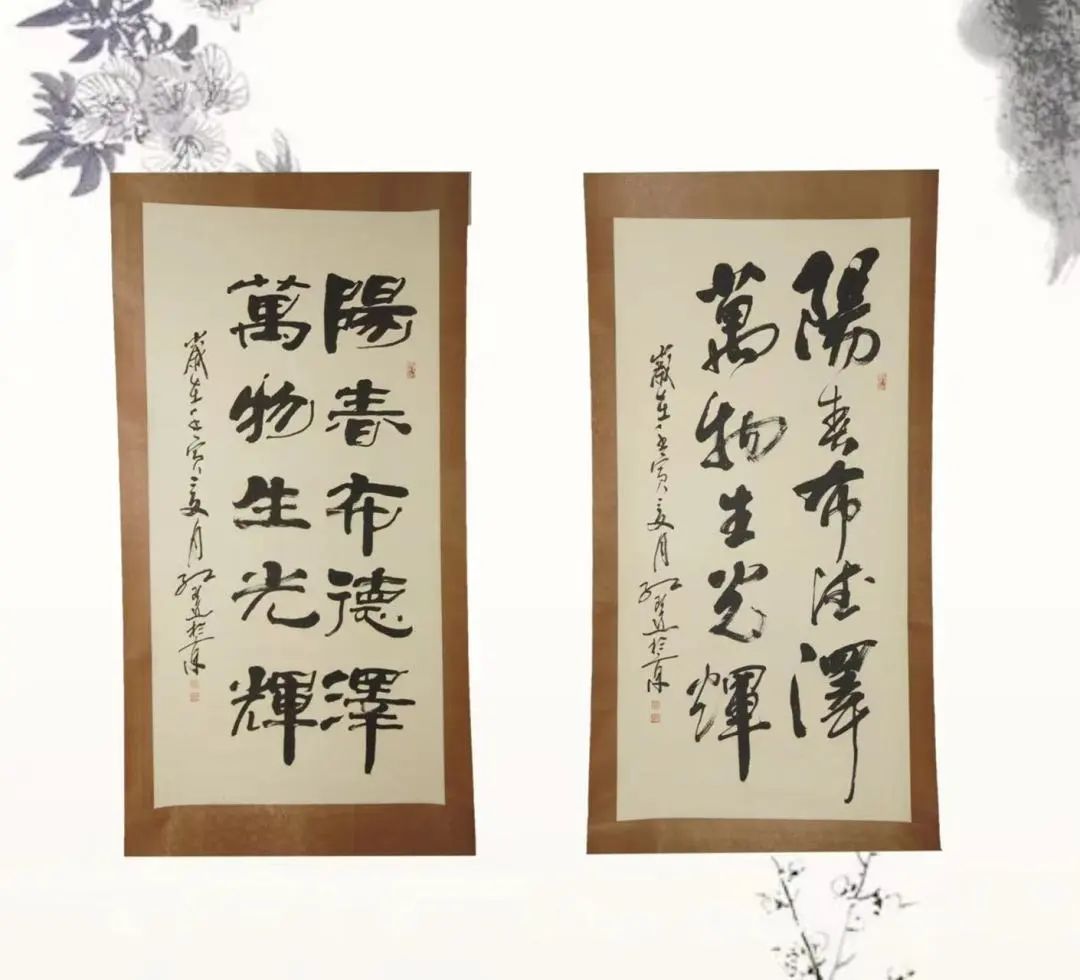 陽春布德澤
萬物生光輝
歲在壬寅夏月 於
陽春布德澤
萬物生光輝
歲在壬寅夏月 於